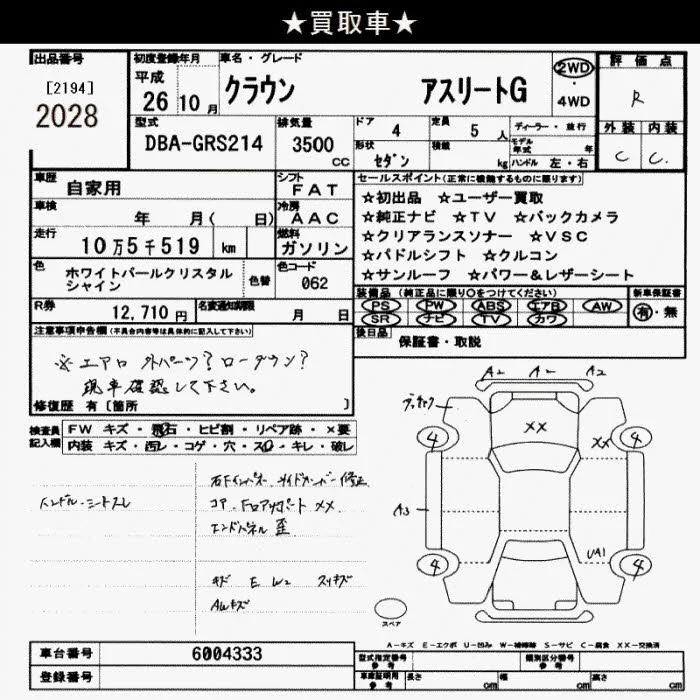 ★買取車★
出品番号
[2194]
2028
初度登録年月
平成
26 10 月
車名・グレード
クラウン アスリートG
2WD
・
4WD
評価点
R
型式
DBA-GRS214
排気量
3500
cc
ドア
4
定員
5 人
ディーラー・並行
モデル年式 年
形状
セダン
積載
kg
ハンドル 左・右
外装 内装
C C.
車歴
自家用
シフト
FAT
車検
年 月( 日)
冷房
AAC
走行
10万5千519 km
燃料
ガソリン
色
ホワイトパールクリスタル
シャイン
色替
色コード
062
R券
12,710 円
名変通知期限
月 日
セールスポイント(正常に機能するものに限ります)
☆初出品 ☆ユーザー買取
☆純正ナビ ☆TV ☆バックカメラ
☆クリアランスソナー ☆VSC
☆パドルシフト ☆クルコン
☆サンルーフ ☆パワー&レザーシート
装備品(純正品に限り○をつけてください)
PS PW ABS エアB AW
SR ナビ TV カワ
新車保証書
有・無
後日品
保証書・取説
注意事項申告欄(不具合内容等は具体的に記入して下さい)
※エアロ 外パーツ? ローダウン?
現車確認して下さい。
修復歴 有〔箇所 〕
検査員
記入欄
FW キズ・飛石・ヒビ割・リペア跡・×要
内装 キズ・汚レ・コゲ・穴・スレ・キレ・破レ
ハンドル・シートスレ
右Fインパネ サイドメンバー修正
コア・Fロアサポート XX
エンドパネル 歪
キズ E W2 スリキズ
AWキズ
A2 A2 A2
XX
XX
4 4
A3
UA1
4 4
スペア
A-キズ E-エクボ U-凹み W-補修跡 S-サビ C-腐食 XX-交換済
車台番号
6004333
登録番号
型式指定番号
参考
類別区分番号
参考
車庫証明用
参考
長さ cm
幅 cm
高さ cm